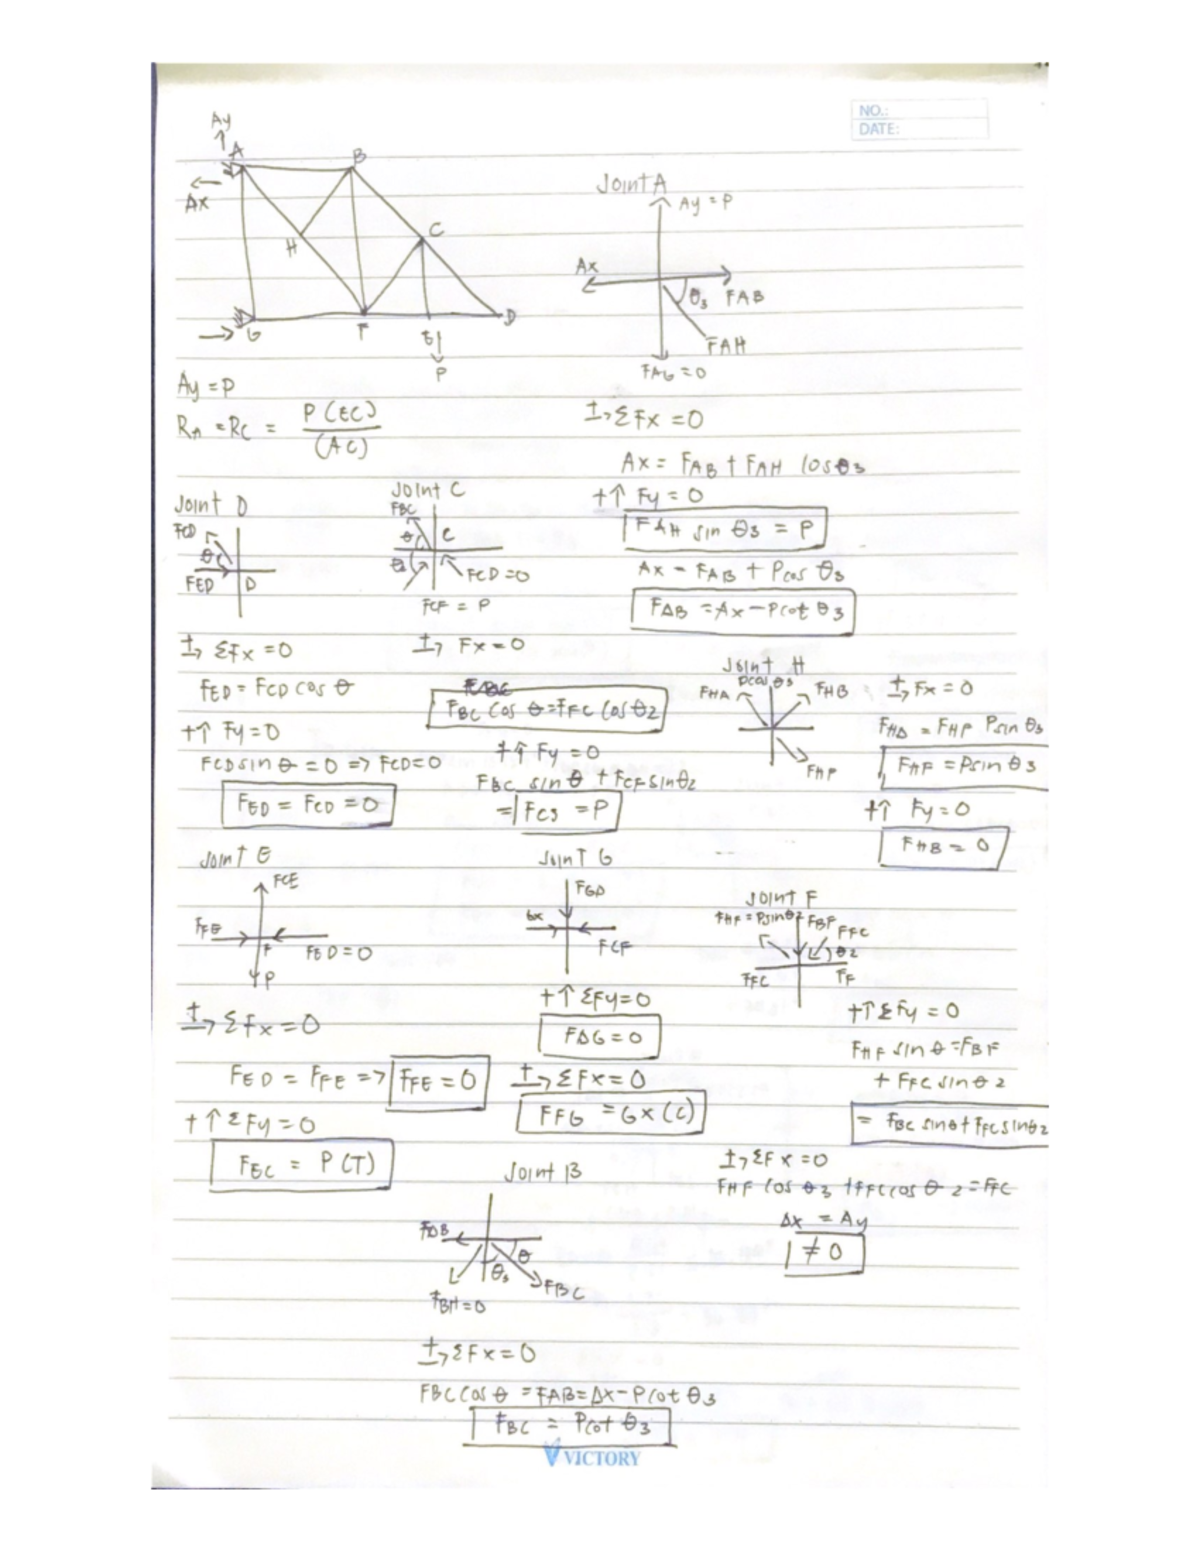 NO.:
DATE:
Ay
A
B
Ax
H
C
G
F
E
D
P
Joint A
Ay = P
Ax
θ3
FAB
FAH
FAG = 0
Ay = P
RA = RC = P(EC) / (AC)
±→ ΣFx = 0
Ax = FAB + FAH cos θ3
+↑ Fy = 0
FAH sin θ3 = P
Ax = FAB + Pcos θ3
FAB = Ax - Pcot θ3
Joint D
FCD
θ
FED
D
±→ ΣFx = 0
FED = FCD cos θ
+↑ Fy = 0
FCD sin θ = 0 => FCD = 0
FED = FCD = 0
Joint C
FBC
θ
C
θ2
FCD = 0
FCF = P
±→ Fx = 0
FBC cos θ = FFC cos θ2
+↑ Fy = 0
FBC sin θ + FCF sin θ2
= FCS = P
Joint H
Pcos θ3
FHA
FHB
FHP
±→ Fx = 0
FHA = FHP Psin θ3
FHF = Psin θ3
+↑ Fy = 0
FHB = 0
Joint E
FCE
FFE
F
FED = 0
P
±→ ΣFx = 0
FED = FFE => FFE = 0
+↑ ΣFy = 0
FEC = P (T)
Joint G
FGD
Gx
FCF
+↑ ΣFy = 0
FAG = 0
±→ ΣFx = 0
FFG = Gx (C)
Joint F
FHF = Psin θ2
FBF
FFC
θ2
FFC
FF
+↑ ΣFy = 0
FHF sin θ = FBF
+ FFC sin θ2
= FBC sin θ + FFC sin θ2
±→ ΣFx = 0
FHF cos θ3 + FFC cos θ2 = FFC
Ax = Ay
≠ 0
Joint B
FAB
θ
θ3
FBC
FBH = 0
±→ ΣFx = 0
FBC cos θ = FAB = Ax - Pcot θ3
FBC = Pcot θ3
VICTORY